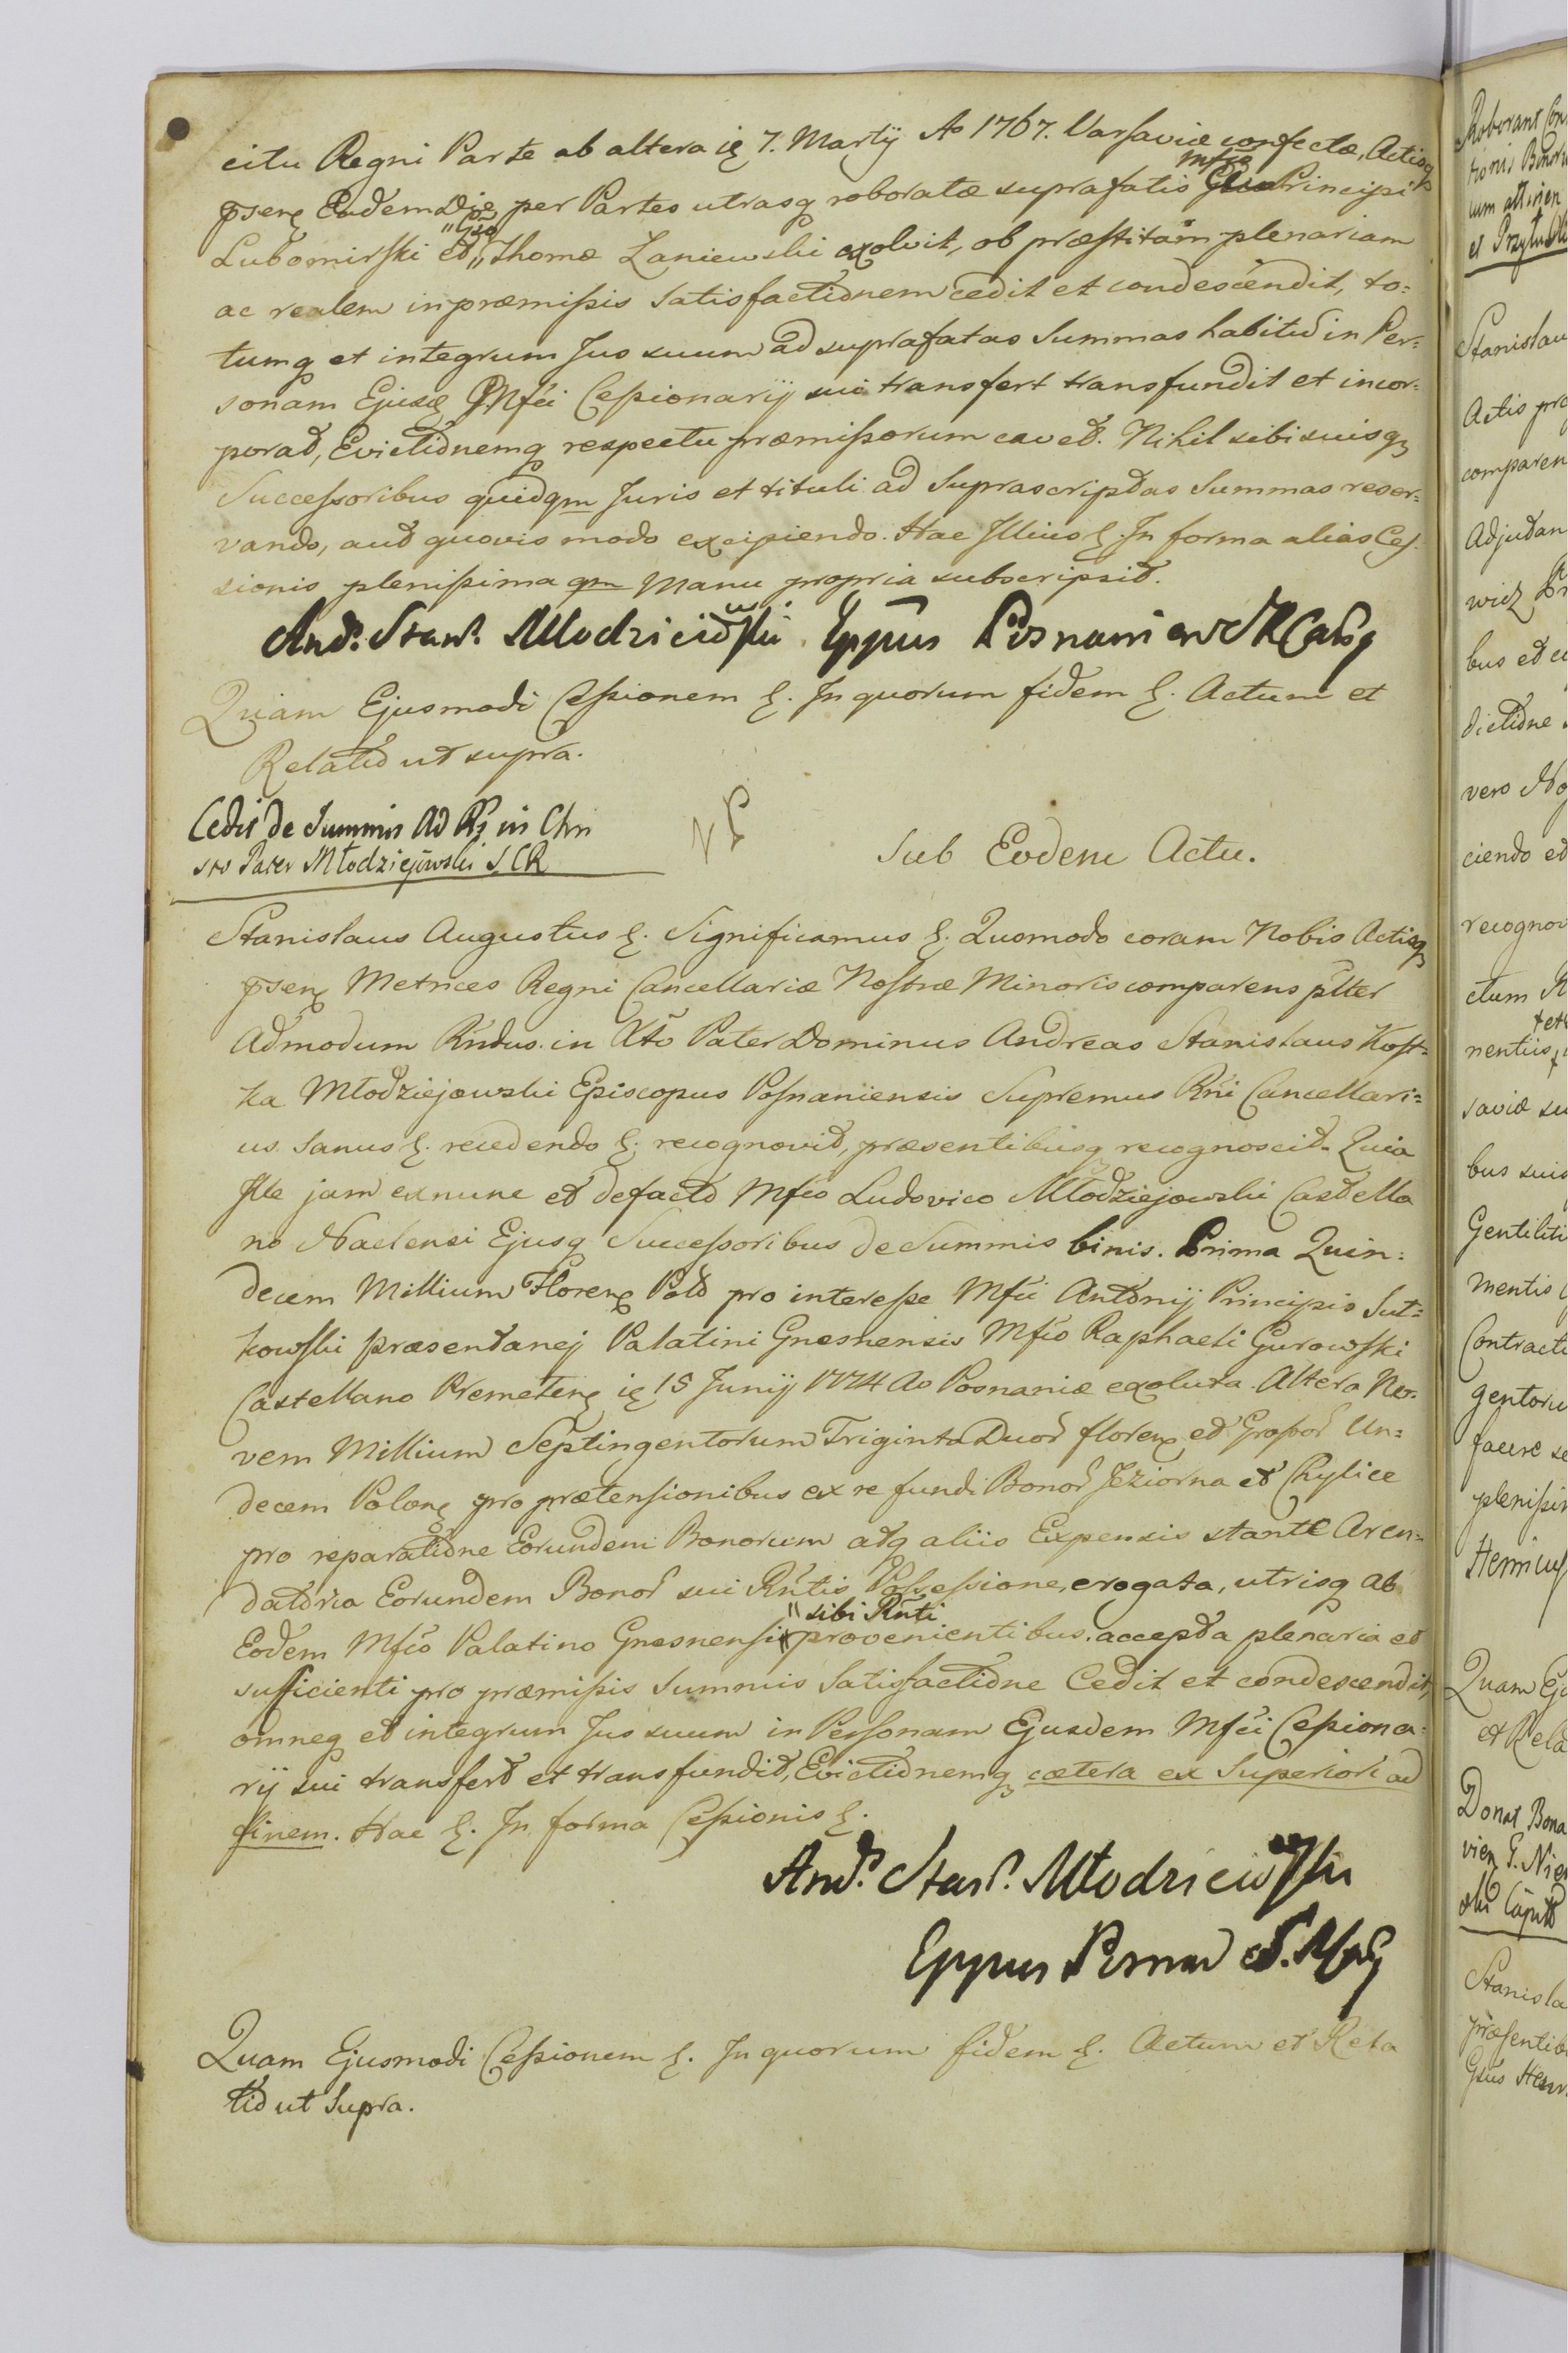 citu Regni Parte ab altera ię 7. Martÿ Ao 1767. Varsaviæ confectæ, Actisq
pseñ Eadem Die per Partes utrasq roboratæ suprafatis Mfco Principi
Lubomirski et "Gso" Thomæ Łaniewski exolvit, ob præstitam plenariam
ac realem in præmissis Satisfactionem cedit et condescendit, to=
tumq et integrum Jus suum ad suprafatas Summas habitum in Per=
sonam Ejusd Mfci Cessionarij sui transfert transfundit et incor=
porat, Evictionemq respectu præmissorum cavet. Nihil sibi suisq
Successoribus quidqm Juris et tituli ad Suprascriptas Summas reser=
vando, aut quovis modo excipiendo. Hac Illius &. In forma alias Ces=
sionis plenissima qm Manu propria subscripsit.
And. Stan. Młodzieiowski Eppus Posnanien
Quam Ejusmodi Cessionem &. In quorum fidem &. Actum et
Relatio ut supra.
Cedit de Summis Ad Rs in Chri
sto Pater Młodziejowski S CR
Sub Eodem Actu.
Stanislaus Augustus &. Significamus &. Quomodo coram Nobis Actisq
pseñ Metrices Regni Cancellariæ Nostræ Minoris comparens pslter
Admodum Rndus in Xto Pater Dominus Andreas Stanislaus Kost=
ka Młodziejowski Episcopus Posnaniensis Supremus Rni Cancellari=
us Sanus &. recedendo &. recognovit, præsentibusq recognoscit. Quia
Ille jam ex nunc et de facto Mfco Ludovico Młodziejowski Castella
no Naclensi Ejusq Successoribus de Summis binis. Prima Quin=
decem Millium Floreñ Pold pro interesse Mfci Antonij Principis Suł=
kowski præsentanej Palatini Gnesnensis Mfco Raphaeli Gurowski
Castellano Premeteñ ię 15 Junij 1774 Ao Posnaniæ exoluta. Altera No=
vem Millium Septingentorum Triginta Duor floreñ et Grossor Un=
decem Poloñ pro prætensionibus ex re fundi Bonor Jeziorna et Chylice
pro reparatione Eorundem Bonorum atq aliis Expensis stante Aren=
datoria Eorundem Bonor sui Rntis Possessione, erogata, utrisq ab
Eodem Mfco Palatino Gnesnensi "sibi Rnti provenientibus. accepta plenaria et
sufficienti pro præmissis Summis Satisfactione Cedit et condescendit,
omneq et integrum Jus suum in Personam Ejusdem Mfci Cessiona=
rij sui transfert et transfundit, Evictionemq cætera ex Superiori ad
finem. Hac &. In forma Cessionis &.
And. Stan. Młodzieiowski
Eppus Posnan
Quam Ejusmodi Cessionem &. In quorum fidem &. Actum et Rela
tio ut Supra.
Stanislau
Actis pro
comparen
Adjutan
wicz
bus et
dictione
vero
ciendo et
recognov
ctum
nentiis
saviæ su
bus suis
Gentiliti
mentis
Contracti
gentoru
facere se
plenissim
Henricus
Quam Ej
et Rela
Donat Bona
Stanisla
præsentib
Gsus Henr